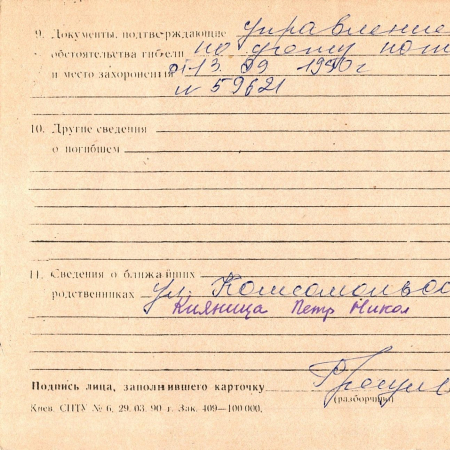 9. Документы, подтверждающие управление
обстоятельства гибели по учету
и место захоронения от 13 09 1990 г
N 59621
10. Другие сведения
о погибшем
11. Сведения о ближайших
родственниках ул. Комсомольс
Кияница Петр Никол
Подпись лица, заполнившего карточку
(разборчиво)
Киев. СПТУ № 6, 29. 03. 90 г. Зак. 409—100 000.